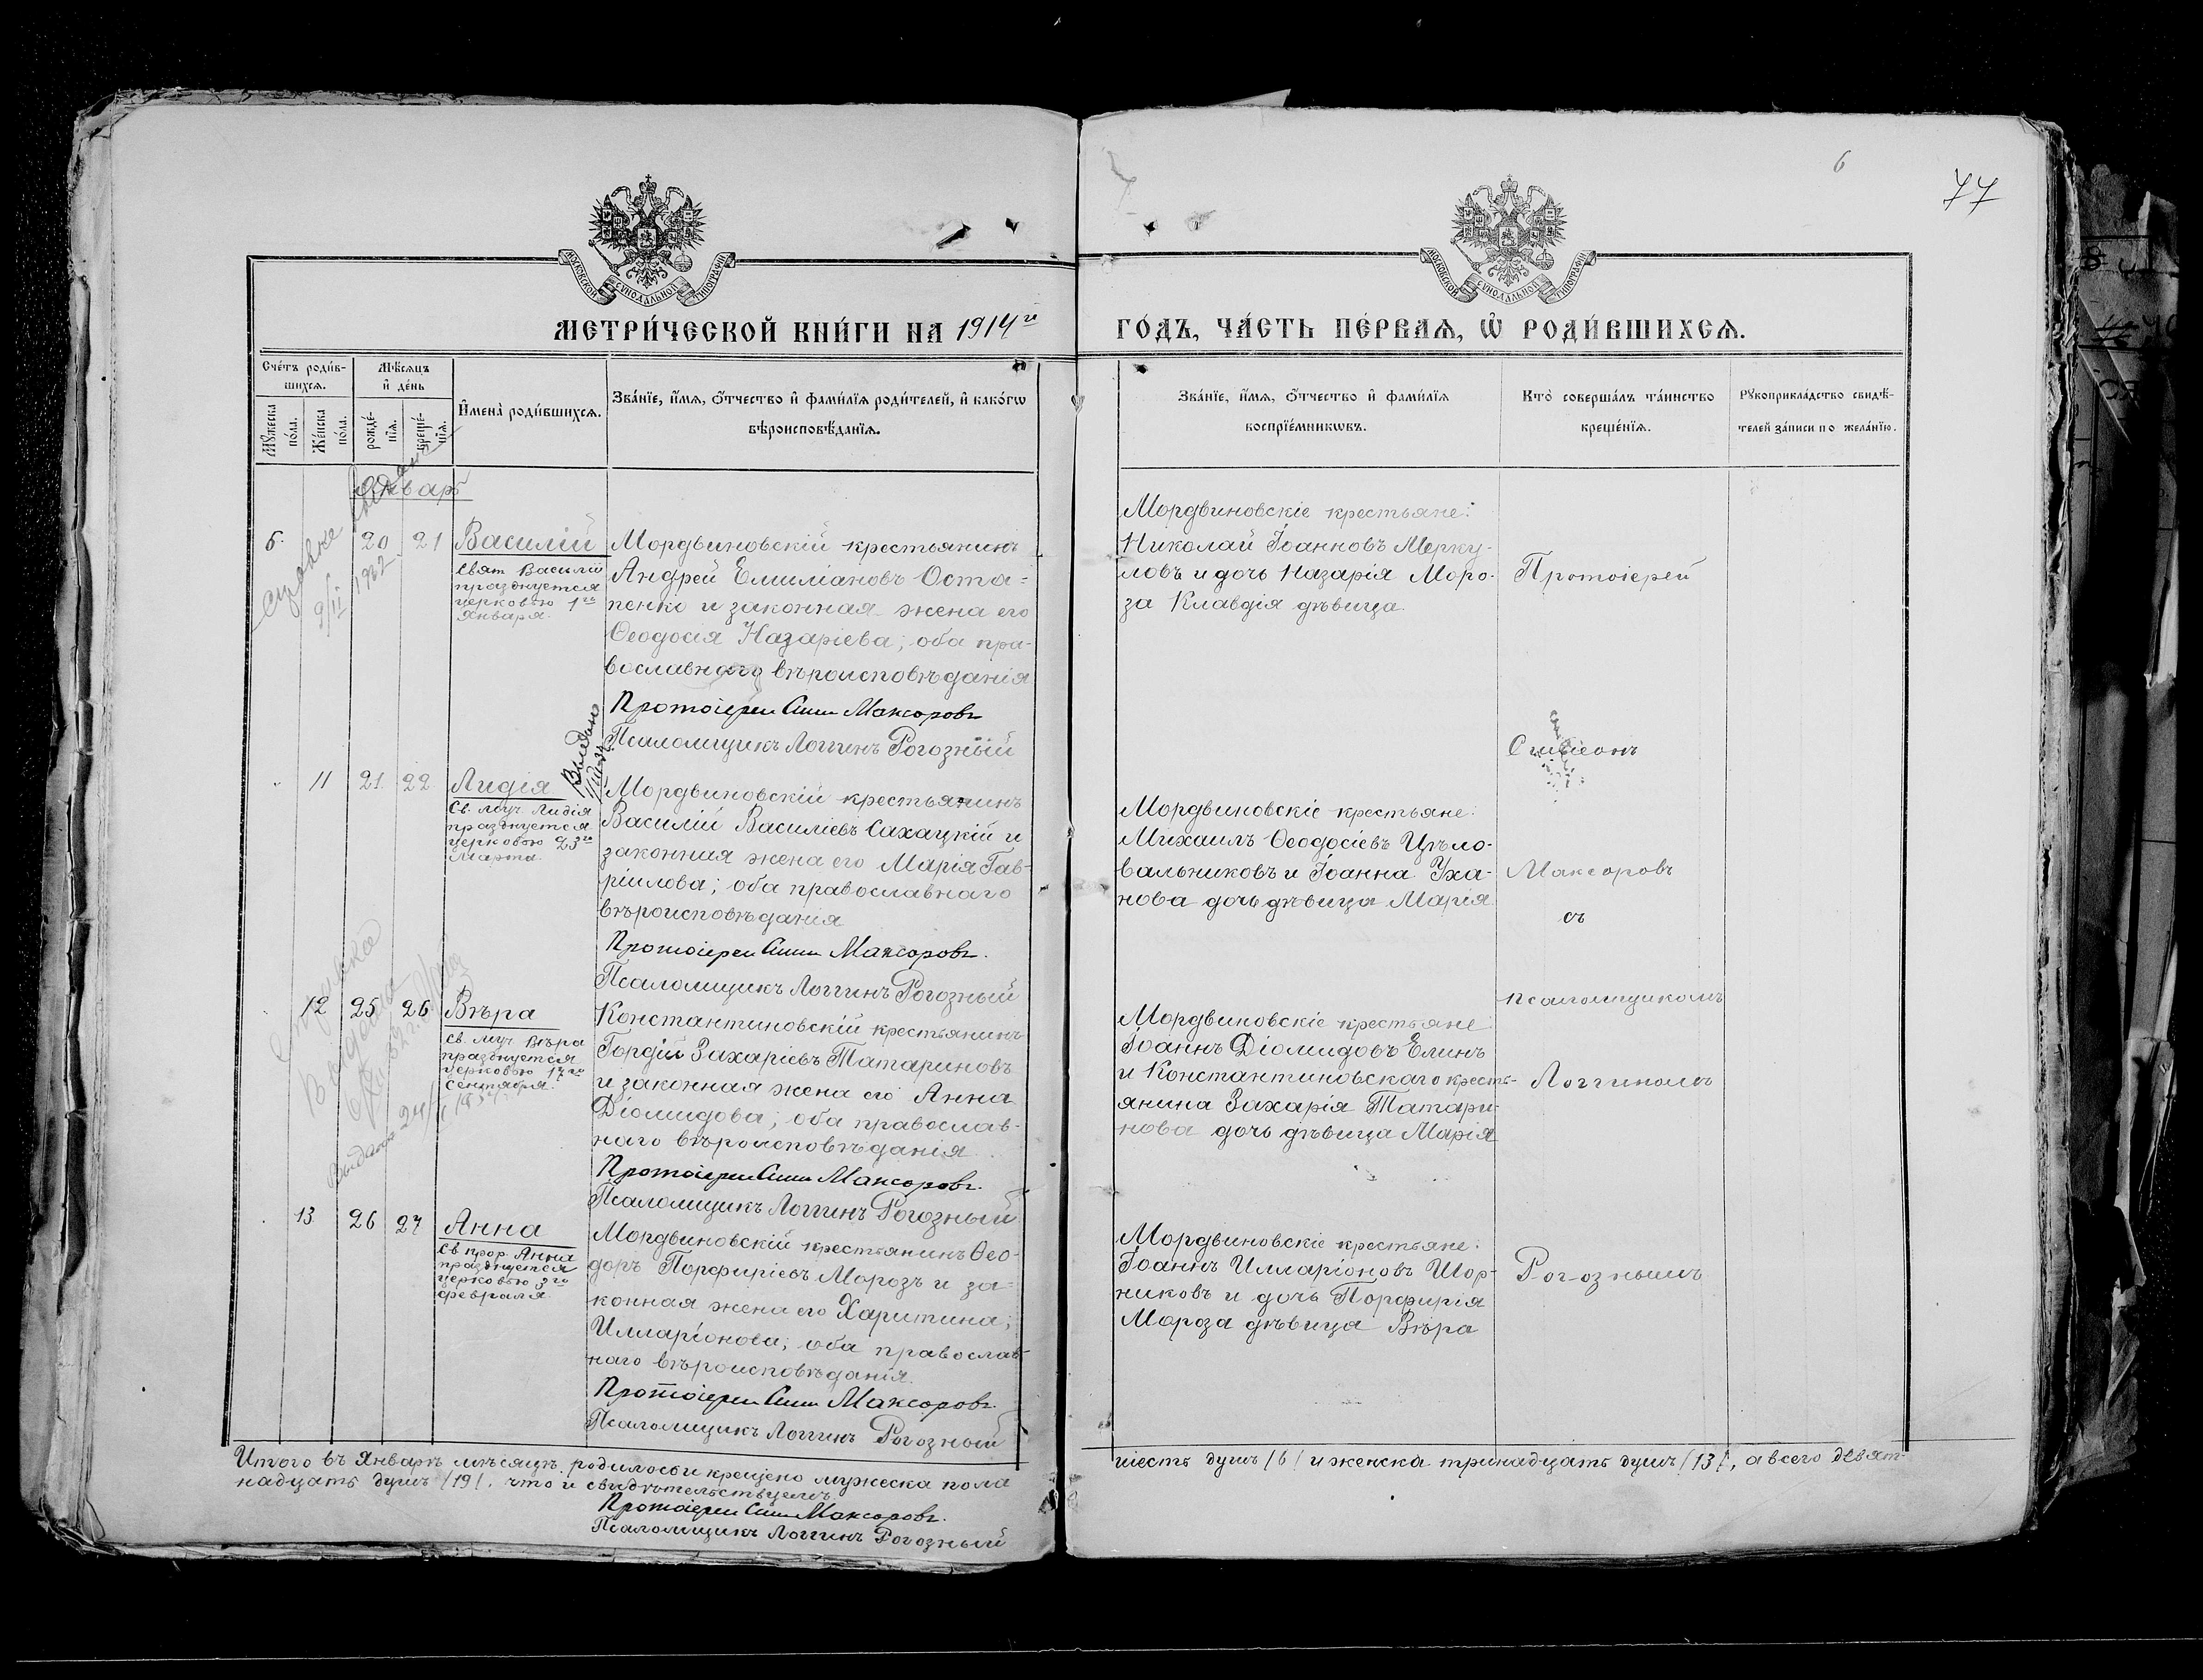 6
77
МОСКОВСКОЙ СѴНОДАЛЬНОЙ ТИПОГРАФІИ
МОСКОВСКОЙ СѴНОДАЛЬНОЙ ТИПОГРАФІИ
МЕТРИ́ЧЕСКОЙ КНИ́ГИ НА 1914 й
ГО́ДЪ, ЧА́СТЬ ПЕ́РВАѦ, Ѽ РОДИ́ВШИХСѦ.
Сче́тъ роди́в-
шихсѧ.
Мꙋ́жеска по́ла.
Же́нска по́ла.
Мѣ́сѧцъ
и҆ де́нь
рожде́-
нїѧ.
креще́-
нїѧ.
И҆мена̀ роди́вшихсѧ.
Зва́нїе, и҆́мѧ, ѻ҆́тчество и҆ фами́лїѧ роди́телей, и҆ како́гѡ
вѣроисповѣ́данїѧ.
Зва́нїе, и҆́мѧ, ѻ҆́тчество и҆ фами́лїѧ
воспрїе́мникѡвъ.
Кто̀ соверша́лъ та́инство
креще́нїѧ.
Рꙋкоприкла́дство свидѣ́-
телей за́писи по жела́нїю.
Январь
6. 20 21 Василій
Свят Василій
празднуется
церковью 1го
Января.
Мордвиновскій крестьянинъ
Андрей Емиліановъ Оста-
пенко и законная жена его
Ѳеодосія Назаріева; оба пра-
вославнаго вѣроисповѣданія
Протоіерей Сими Максоровъ
Псаломщикъ Логгинъ Рогозный
Мордвиновскіе крестьяне:
Николай Іоанновъ Мерку-
ловъ и дочь Назарія Моро-
за Клавдія дѣвица.
Протоіерей
Симеонъ
Выдано
11 21 22 Лидія
Св. муч. Лидія
празднуется
церковью 23го
Марта.
Мордвиновскій крестьянинъ
Василій Василіевъ Сахацкій и
законная жена его Марія Гав-
ріилова; оба православнаго
вѣроисповѣданія
Протоіерей Сими Максоровъ.
Псаломщикъ Логгинъ Рогозный
Мордвиновскіе крестьяне:
Михаилъ Ѳеодосіевъ Цѣло-
вальниковъ и Іоанна Уха-
нова дочь дѣвица Марія
Максоровъ
съ
псаломщикомъ
12 25 26 Вѣра
Св. муч Вѣра
празднуется
церковью 17го
Сентября.
Константиновскій крестьянинъ
Гордій Захаріевъ Татариновъ
и законная жена его Анна
Діомидова; оба православ-
наго вѣроисповѣданія
Протоіерей Сими Максоровъ.
Псаломщикъ Логгинъ Рогозный
Мордвиновскіе крестьяне
Іоаннъ Діомидовъ Елинъ
и Константиновскаго кресть-
янина Захарія Татари-
нова дочь дѣвица Марія
Логгиномъ
Выдано
13 26 27 Анна
Св прор. Анна
празднуется
церковью 3го
февраля.
Мордвиновскій крестьянинъ Ѳео-
доръ Порфиріевъ Морозъ и за-
конная жена его Харитина;
Илларіонова; оба православ-
наго вѣроисповѣданія.
Протоіерей Сими Максоровъ.
Псаломщикъ Логгинъ Рогозный
Мордвиновскіе крестьяне:
Іоаннъ Илларіоновъ Шор-
никовъ и дочь Порфирія
Мороза дѣвица Вѣра
Рогознымъ
Итого въ Январѣ мѣсяцѣ родилось и крещено мужеска пола
шесть душъ /6/ и женска тринадцать душъ /13/, а всего девят-
надцать душъ /19/. что и свидѣтельствуемъ.
Протоіерей Сими Максоровъ.
Псаломщикъ Логгинъ Рогозный